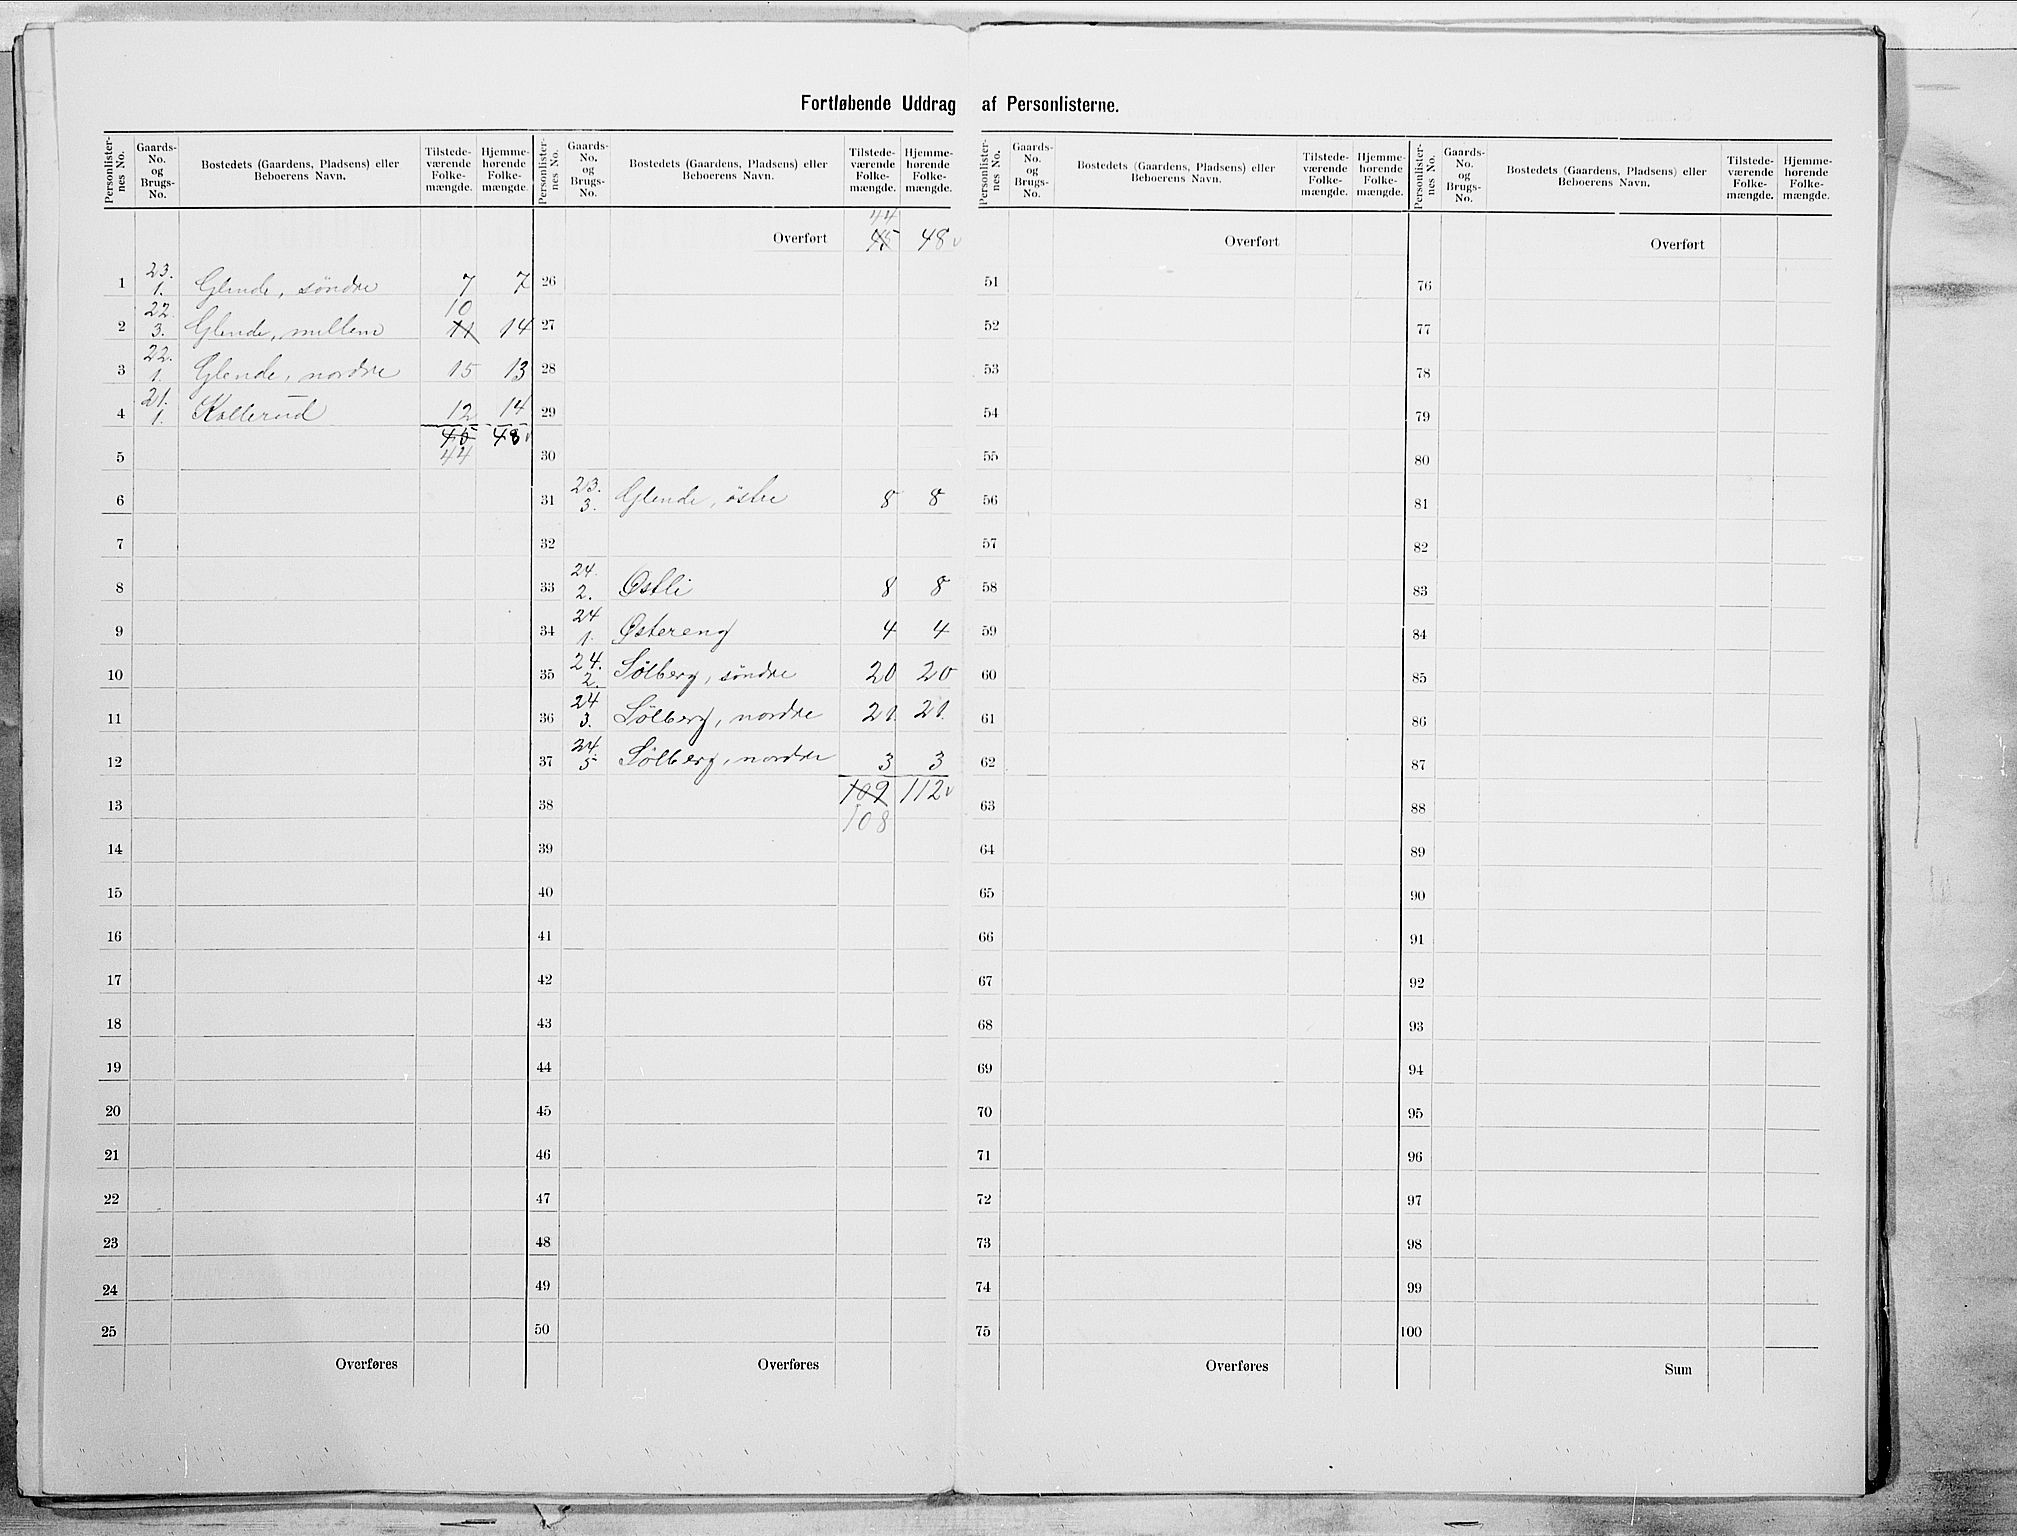 Fortløbende Uddrag af Personlisterne.
Personlister-nes No. | Gaards-No. og Brugs-No. | Bostedets (Gaardens, Pladsens) eller Beboerens Navn. | Tilstede-værende Folke-mængde. | Hjemme-hørende Folke-mængde.
1 | 23. 1. | Glende, söndre | 7 | 7
2 | 22. 3. | Glende, mellem | 10 11 | 14
3 | 22. 1. | Glende, nordre | 15 | 13
4 | 21. 1. | Kollerud | 12 | 14
45 | 48
5 | 44
6
7
8
9
10
11
12
13
14
15
16
17
18
19
20
21
22
23
24
25
Overføres
Personlister-nes No. | Gaards-No. og Brugs-No. | Bostedets (Gaardens, Pladsens) eller Beboerens Navn. | Tilstede-værende Folke-mængde. | Hjemme-hørende Folke-mængde.
44
Overført | 45 | 48
26
27
28
29
30
31 | 23. 3. | Glende, östre | 8 | 8
32
33 | 24. 2. | Østli | 8 | 8
34 | 24 1. | Østereng | 4 | 4
35 | 24. 2. | Sölberg, söndre | 20 | 20
36 | 24 3. | Sölberg, nordre | 21 | 21.
37 | 24. 5 | Sölberg, nordre | 3 | 3
38 | 109 | 112
108
39
40
41
42
43
44
45
46
47
48
49
50
Overføres
Personlister-nes No. | Gaards-No. og Brugs-No. | Bostedets (Gaardens, Pladsens) eller Beboerens Navn. | Tilstede-værende Folke-mængde. | Hjemme-hørende Folke-mængde.
Overført
51
52
53
54
55
56
57
58
59
60
61
62
63
64
65
66
67
68
69
70
71
72
73
74
75
Overføres
Personlister-nes No. | Gaards-No. og Brugs-No. | Bostedets (Gaardens, Pladsens) eller Beboerens Navn. | Tilstede-værende Folke-mængde. | Hjemme-hørende Folke-mængde.
Overført
76
77
78
79
80
81
82
83
84
85
86
87
88
89
90
91
92
93
94
95
96
97
98
99
100
Sum